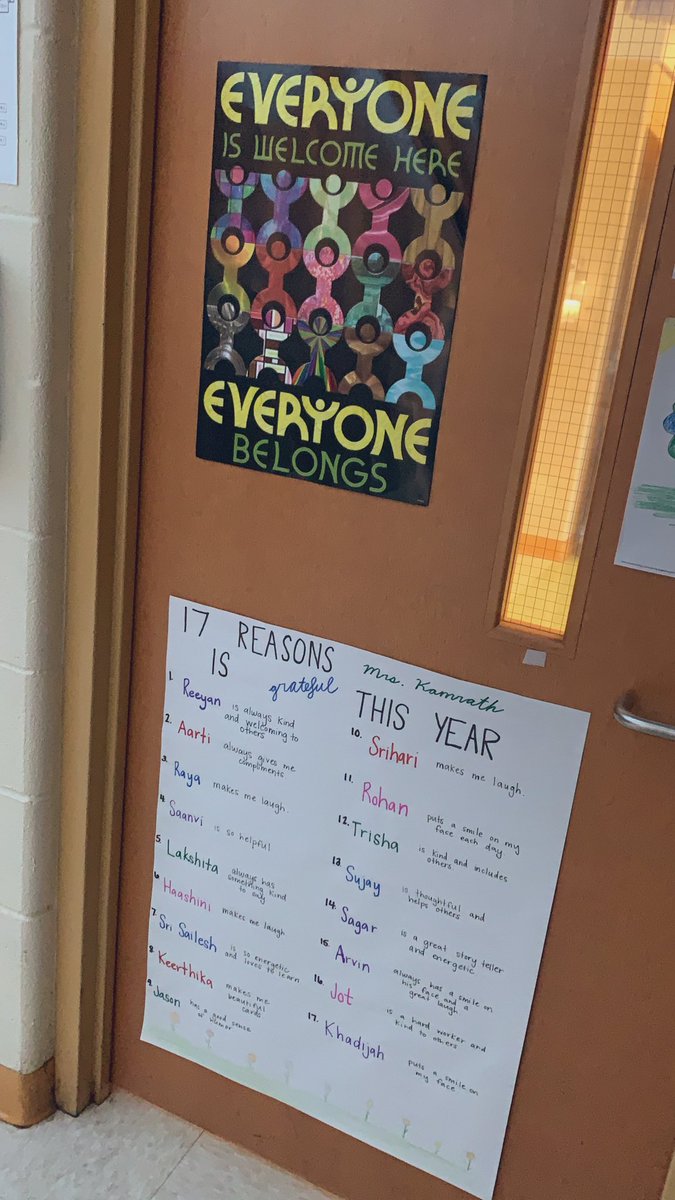 EVERYONE
IS WELCOME HERE
EVERYONE
BELONGS
17 REASONS Mrs. Kamrath
IS grateful THIS YEAR
1. Reeyan is always kind
and welcoming to
others
2. Aarti always gives me
compliments
3. Raya makes me laugh.
4. Saanvi is so helpful
5. Lakshita always has
something kind
to say
6. Haashini makes me laugh
7. Sri Sailesh is so energetic
and loves to learn
8. Keerthika makes me
beautiful
cards
9. Jason has a good sense
of humor
10. Srihari makes me laugh.
11. Rohan puts a smile on my
face each day
12. Trisha is kind and includes
others
13. Sujay is thoughtful and
helps others
14. Sagar is a great story teller
and energetic
15. Arvin always has a smile on
his face and a
great laugh
16. Jot is a hard worker and
kind to others
17. Khadijah puts a smile on
my face